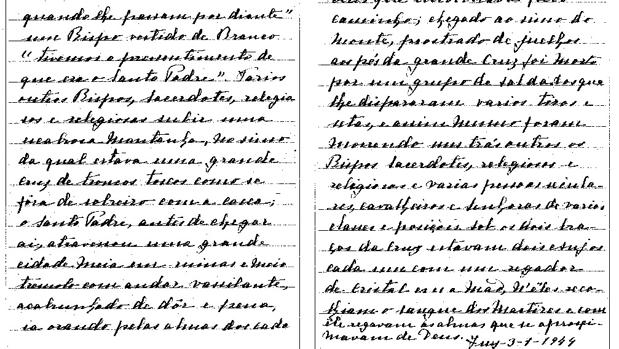 quando lhe passam por diante"
um Bispo vestido de Branco
"tivemos o pressentimento de
que era o Santo Padre". Varios
outros Bispos, Sacerdotes, religio
sos e religiosas subir uma
escabrosa montanha, no simo
da qual estava uma grande
Cruz de troncos toscos como se
fôra de sobreiro com a casca;
o Santo Padre, antes de chegar
aí, atravessou uma grande
cidade meia em ruinas e meio
tremulo com andar vacilante,
acabrunhado de dôr e pena,
ia orando pelas almas dos cada
caminho; chegado ao simo do
monte, prostrado de juelhos
aos pés da grande Cruz foi morto
por um grupo de soldados que
lhe dispararam varios tiros e
setas, e assim mesmo foram
morrendo uns trás outros os
Bispos Sacerdotes, religiosos e
religiosas e varias pessoas secula
res, cavalheiros e senhoras de varias
classes e posições. Sob os dois bra
ços da Cruz estavam dois Anjos
cada um com um regador
de cristal em a mão, n'êles reco
lhiam o sangue dos Martires e com
êle regavam as almas que se aproxi
mavam de Deus.
Tuy-3-1-1944